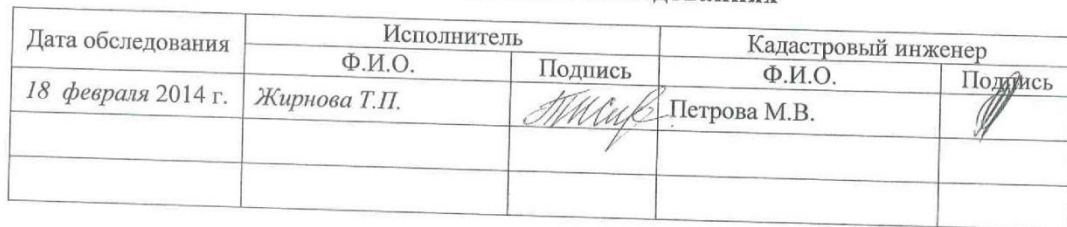 Дата обследования Исполнитель Кадастровый инженер
Ф.И.О. Подпись Ф.И.О. Подпись
18 февраля 2014 г. Жирнова Т.П. Петрова М.В.